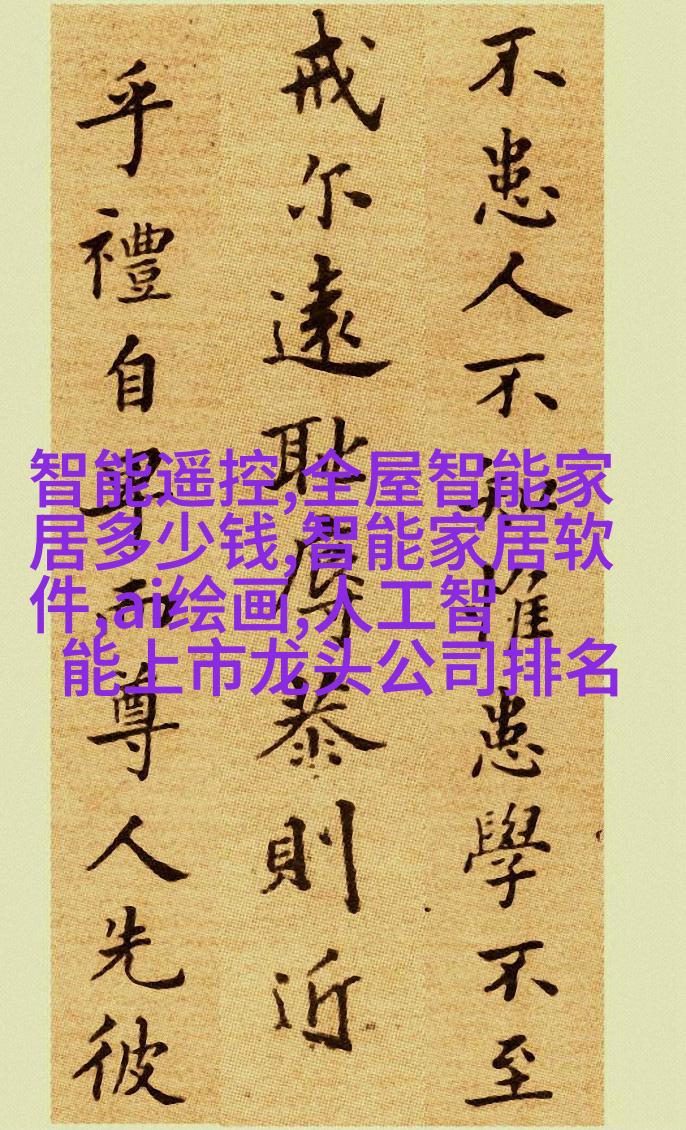 不患人不知惟患學不至
戒尔遠耻辱恭則近
乎禮自卑而尊人先彼
智能遥控,全屋智能家
居多少钱,智能家居软
件,ai绘画,人工智
能上市龙头公司排名